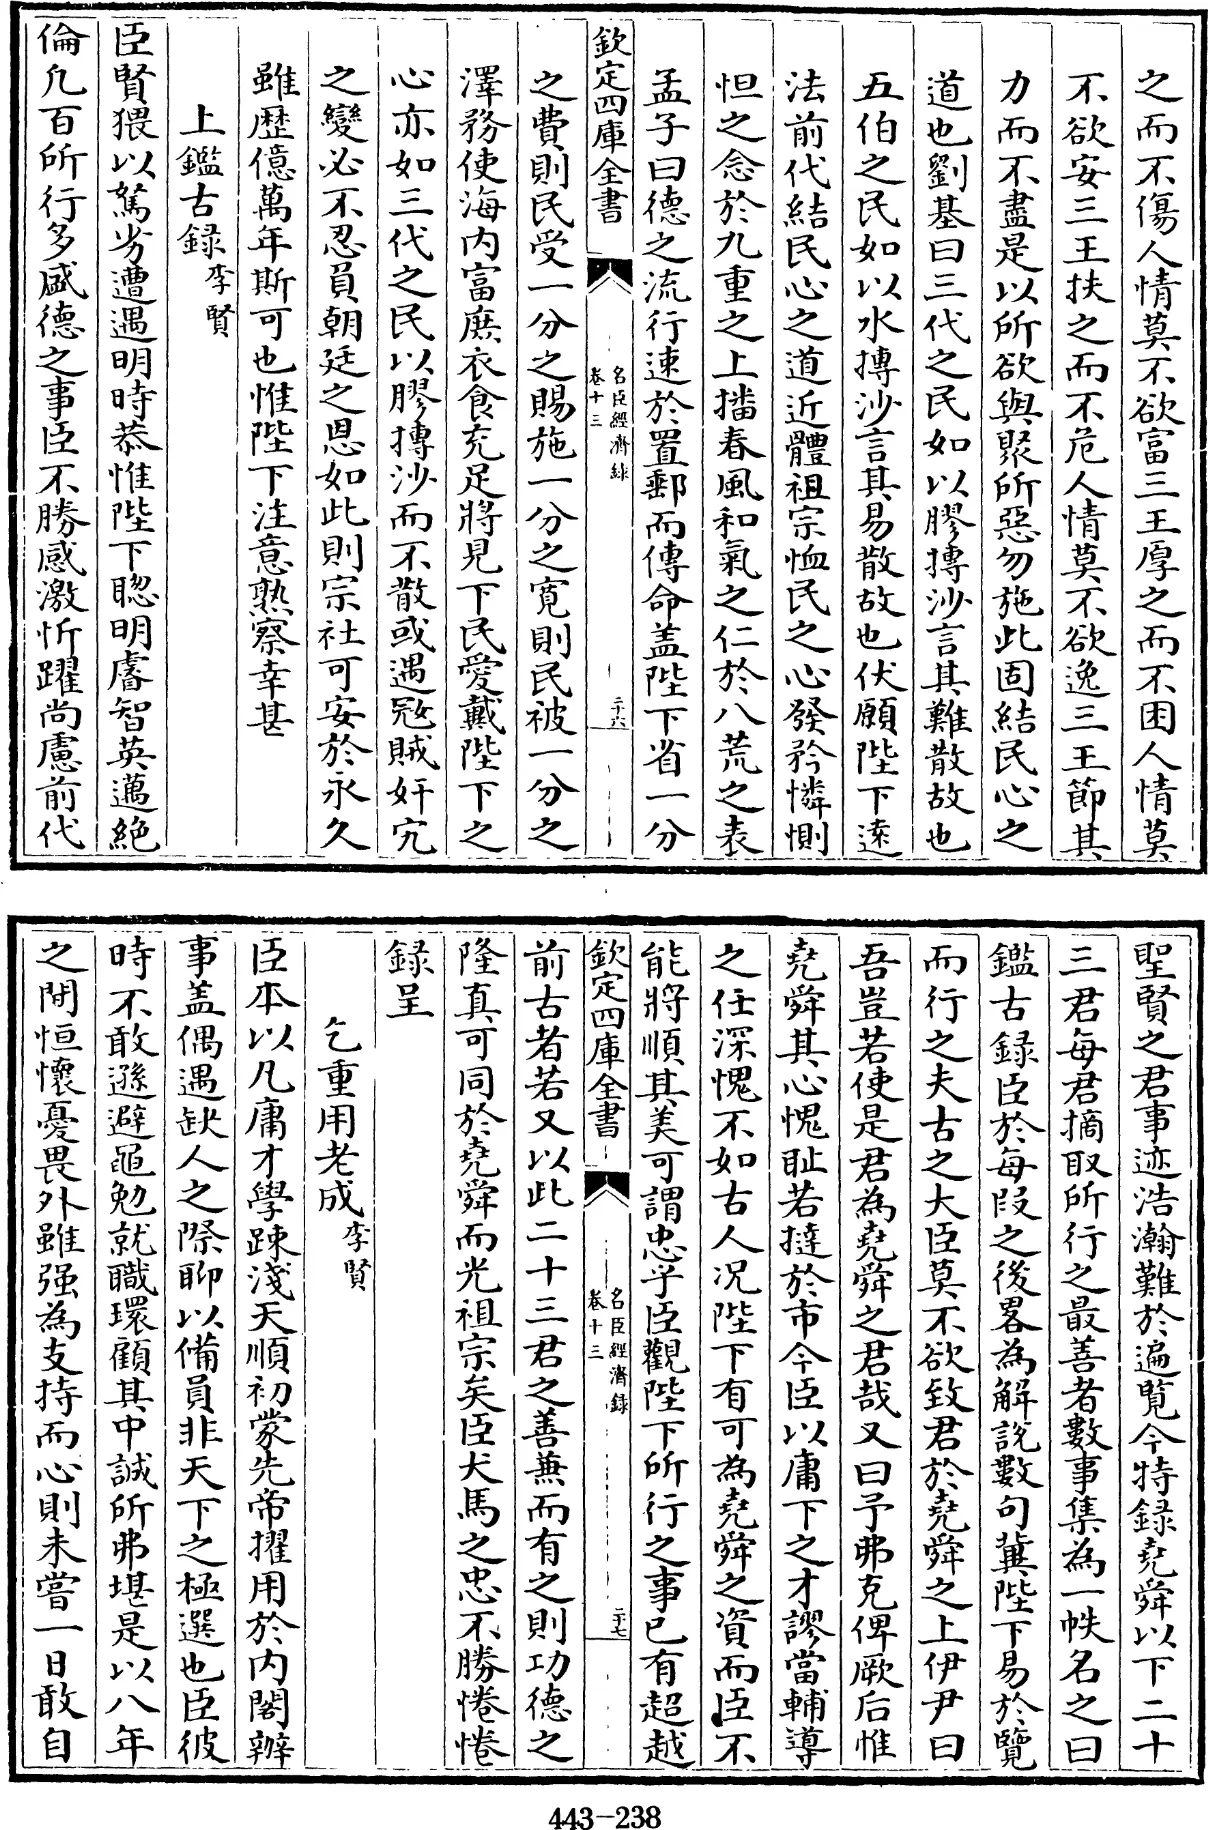 之而不傷人情莫不欲富三王厚之而不困人情莫
不欲安三王扶之而不危人情莫不欲逸三王節其
力而不盡是以所欲與聚所惡勿施此固結民心之
道也劉基曰三代之民如以膠摶沙言其難散故也
五伯之民如以水摶沙言其易散故也伏願陛下逺
法前代結民心之道近體祖宗恤民之心發矜憐惻
怛之念於九重之上播春風和氣之仁於八荒之表
孟子曰德之流行速於置郵而傳命蓋陛下省一分
欽定四庫全書
名臣經濟録
卷十三
二十六
之費則民受一分之賜施一分之寛則民被一分之
澤務使海内富庶衣食充足將見下民愛戴陛下之
心亦如三代之民以膠摶沙而不散或遇宼賊奸宄
之變必不忍負朝廷之恩如此則宗社可安於永久
雖歴億萬年斯可也惟陛下注意熟察幸甚
上鑑古録李賢
臣賢猥以駑劣遭遇明時恭惟陛下聦明睿智英邁絶
倫凡百所行多盛德之事臣不勝感激忻躍尚慮前代
聖賢之君事迹浩瀚難於遍覧今特録堯舜以下二十
三君每君摘取所行之最善者數事集為一帙名之曰
鑑古録臣於每段之後畧為解說數句冀陛下易於覽
而行之夫古之大臣莫不欲致君於堯舜之上伊尹曰
吾豈若使是君為堯舜之君哉又曰予弗克俾厥后惟
堯舜其心愧耻若撻於市今臣以庸下之才謬當輔導
之任深愧不如古人况陛下有可為堯舜之資而臣不
能將順其美可謂忠乎臣觀陛下所行之事已有超越
欽定四庫全書
名臣經濟録
卷十三
二十七
前古者若又以此二十三君之善兼而有之則功德之
隆真可同於堯舜而光祖宗矣臣犬馬之忠不勝惓惓
録呈
乞重用老成李賢
臣本以凡庸才學踈淺天順初蒙先帝擢用於内閣辦
事盖偶遇缺人之際聊以備員非天下之極選也臣彼
時不敢遜避黽勉就職環顧其中誠所弗堪是以八年
之間恒懷憂畏外雖强為支持而心則未嘗一日敢自
443-238